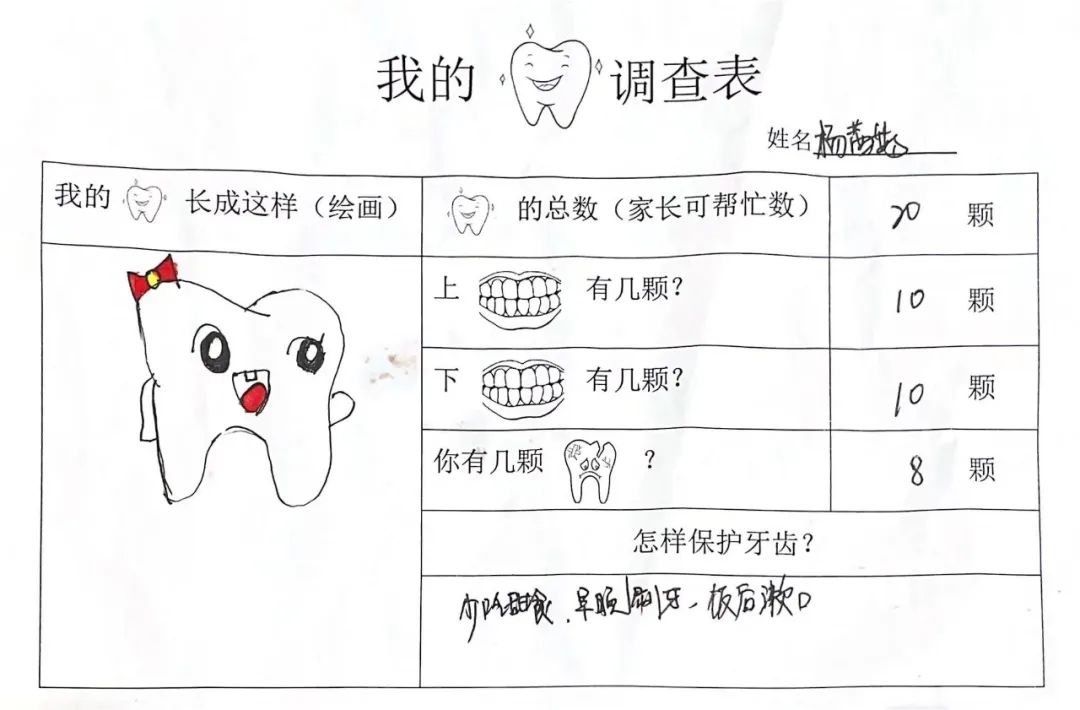 我的 调查表
姓名 杨
我的 长成这样（绘画）
的总数（家长可帮忙数） 20 颗
上 有几颗？ 10 颗
下 有几颗？ 10 颗
你有几颗 ？ 8 颗
怎样保护牙齿？
少吃甜食、早晚刷牙、饭后漱口